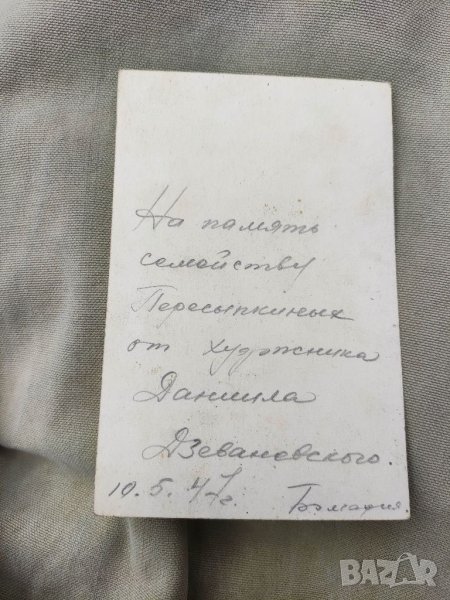 На память
семейству
Пересыпкиных
от художника
Даниила
Дзевановского.
10.5.47г. Болгария.
BAZAR.bg